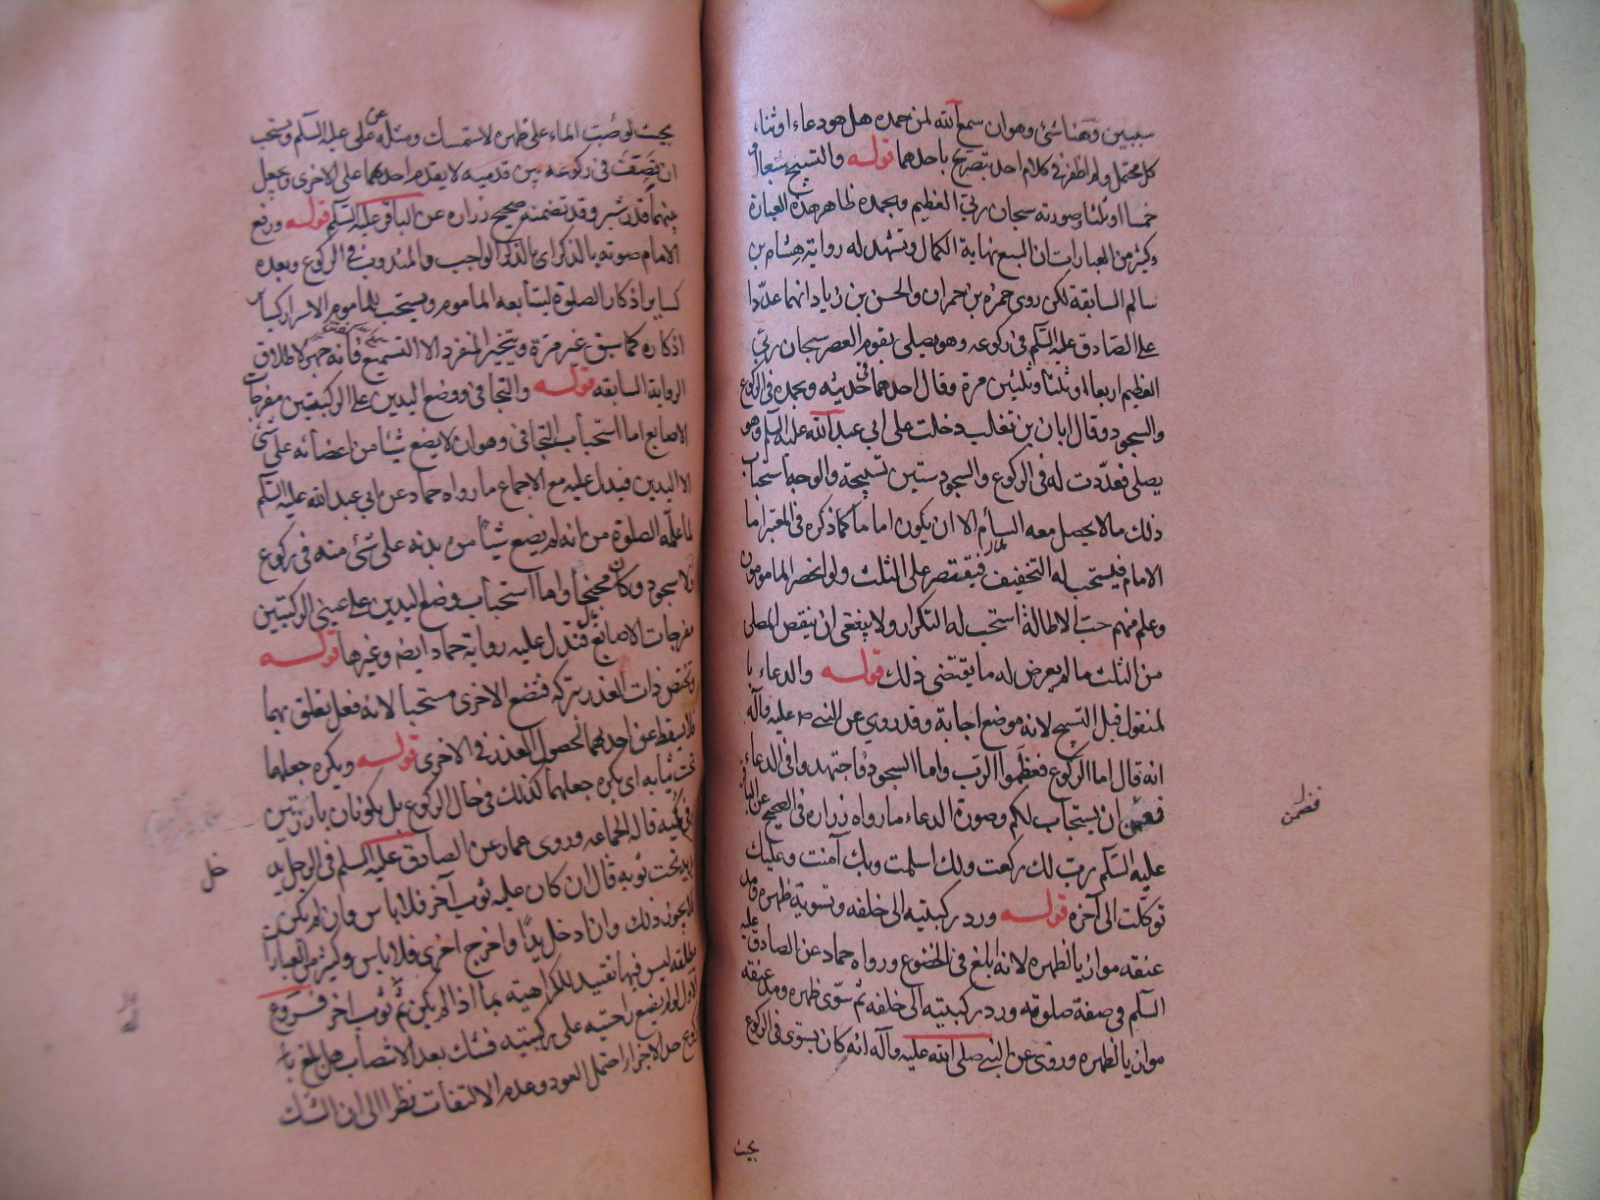 سببين وهنا شئ وهو ان سمع الله لمن حمده هل هو دعاء او ثناء
كل محتمل ولم اظفر في كلام احد بتصريح باحدهما قوله والتسبيح سبعا او
خمسا او ثلثا وصورته سبحان ربي العظيم وبحمده ظاهر هذه العبارة
وكثير من العبارات ان السبع نهاية الكمال وتشهد له رواية هشام بن
سالم السابقة لكن روى حمزه بن حمران والحسن بن زياد انهما عدّدا
على الصادق عليه السلم في ركوعه وهو يصلى بقوم العصر سبحان ربي
العظيم اربعا او ثلثا وثلثين مرة وقال احدهما في حديثه وبحمده في الركوع
والسجود وقال ابان بن تغلب دخلت على ابي عبد الله عليه السلم وهو
يصلى فعدّدت له في الركوع والسجود ستين تسبيحة والوجه استحباب
ذلك مالا يحصل معه السأم الا ان يكون اماما كما ذكره في المعتبر اما
الامام فيستحب له التخفيف فيقتصر على الثلث ولو انحصر المامومون
وعلم منهم حب الاطالة استحب له التكرار ولا ينبغى ان ينقص المصلى
من الثلث ما لم يعرض له ما يقتضى ذلك قوله والدعاء با
لمنقول قبل التسبيح لانه موضع اجابة وقد روي عن النبي ص عليه وآله
انه قال اما الركوع فعظموا الرب واما السجود فاجتهدوا في الدعاء
فقمن ان يستجاب لكم وصورة الدعاء ما رواه زراره في الصحيح عن الباقر
عليه السلم رب لك ركعت ولك اسلمت وبك آمنت وعليك
توكلت الى آخره قوله ورد ركبتيه الى خلفه وتسوية ظهره ومد
عنقه موازيا لظهره لانه ابلغ في الخضوع ورواه حماد عن الصادق عليه
السلم في صفة صلوته ورد ركبتيه الى خلفه ثم سوى ظهره ومد عنقه
موازيا لظهره وروى عن النبي صلى الله عليه وآله انه كان يستوى في الركوع
فقمن
بحيث
بحيث لو صب الماء على ظهره لاستمسك ومثله عن على عليه السلم ويستحب
ان يصف في ركوعه بين قدميه لا يقدم احدهما على الاخرى ويجعل
بينهما قدر شبر وقد تضمنه صحيح زراره عن الباقر عليه السلم قوله ورفع
الامام صوته بالذكر اى بالذكر الواجب والمندوب في الركوع وبعده
كساير اذكار الصلوة ليتابعه الماموم ويستحب للماموم الاسرار كساير
اذكاره كما سبق غير مرة ويتخير المنفرد الا التسميع فانه جهر لاطلاق
الرواية السابقه قوله والتجافى ووضع اليدين على الركبتين مفرجات
الاصابع اما استحباب التجافى وهو ان لا يضع شيئا من اعضائه على شئ
الا اليدين فيدل عليه مع الاجماع ما رواه حماد عن ابي عبد الله عليه السلم
لما علّمه الصلوة من انه لم يضع شيئا من بدنه على شئ منه في ركوع
ولا سجود وكان مجنحا واما استحباب وضع اليدين على عيني الركبتين
مفرجات الاصابع فتدل عليه رواية حماد ايضا وغيرها قوله
وتختص ذات العذر بتركه فتضع الاخرى مستحبا لانه فعل تعلق بهما
فلا يسقط عن احدهما لحصول العذر في الاخرى قوله ويكره جعلهما
تحت ثيابه اى يكره جعلهما كذلك في حال الركوع بل يكونان بارزتين
او في كميه قاله الجماعه وروى عمار عن الصادق عليه السلم في الرجل يد
خل يديه تحت ثوبه قال ان كان عليه ثوب آخر فلا باس وان لم يكن
فلا يجوز ذلك وان ادخل يدا واخرج اخرى فلا باس وكثير من العبارات
مطلقه ليس فيها تقييد للكراهيته بما اذا لم يكن ثم ثوب اخر فروع
الاول لو لم يضع راحتيه على ركبتيه فشك بعد الانتصاب هل بلغ بالر
كوع حد الاجزاء احتمل العود وعدم الالتفات نظرا الى ان الشك
خل